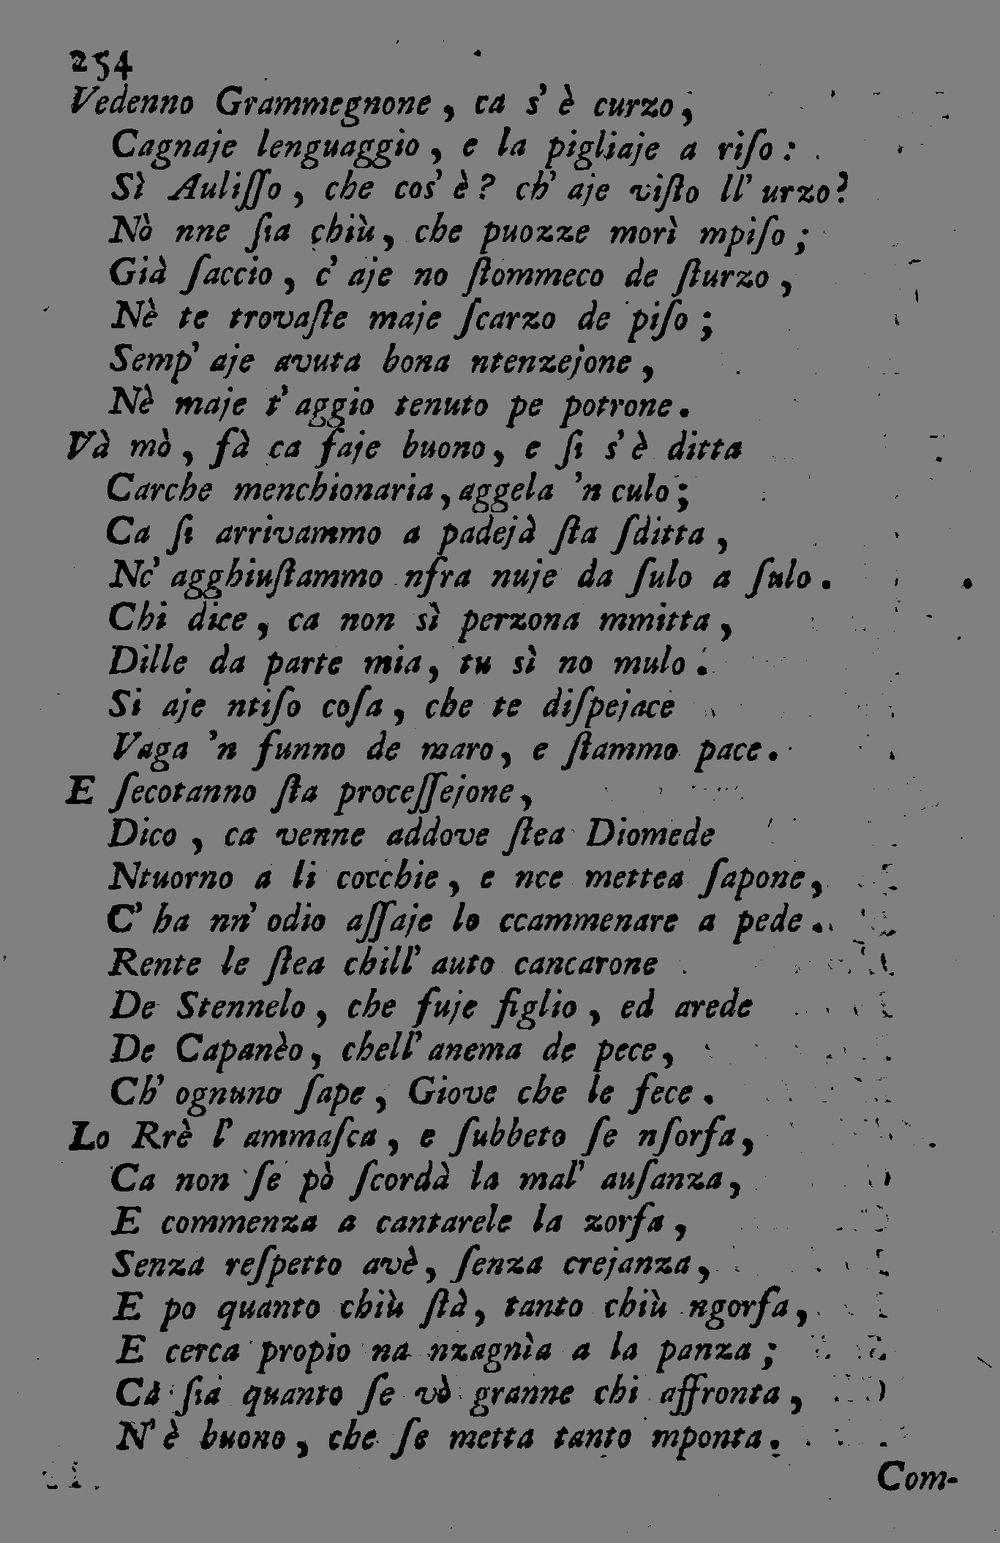 254
Vedenno Grammegnone, ca s'è curzo,
Cagnaje lenguaggio, e la pigliaje a riſo:
Sì Auliſſo, che cos'è? ch'aje viſto ll'urzo?
Nò nne ſia chiù, che puozze morì mpiſo;
Già ſaccio, c'aje no ſtommeco de ſturzo,
Nè te trovaſte maje ſcarzo de piſo;
Semp'aje avuta bona ntenzejone,
Nè maje t'aggio tenuto pe potrone.
Và mò, fà ca faje buono, e ſi s'è ditta
Carche menchionaria, aggela 'n culo;
Ca ſi arrivammo a padejà ſta ſditta,
Nc'agghiuſtammo nfra nuje da ſulo a ſulo.
Chi dice, ca non sì perzona mmitta,
Dille da parte mia, tu sì no mulo.
Si aje ntiſo coſa, che te diſpejace
Vaga 'n funno de maro, e ſtammo pace.
E ſecotanno ſta proceſſejone,
Dico, ca venne addove ſtea Diomede
Ntuorno a li cocchie, e nce mettea ſapone,
C'ha nn'odio aſſaje lo ccammenare a pede.
Rente le ſtea chill'auto cancarone
De Stennelo, che fuje figlio, ed arede
De Capanèo, chell'anema de pece,
Ch'ognuno ſape, Giove che le fece.
Lo Rrè l'ammaſca, e ſubbeto ſe nſorfa,
Ca non ſe pò ſcordà la mal'auſanza,
E commenza a cantarele la zorfa,
Senza reſpetto avè, ſenza crejanza,
E po quanto chiù ſtà, tanto chiù ngorfa,
E cerca propio na nzagnìa a la panza;
Cà ſia quanto ſe vò granne chi affronta,
N'è buono, che ſe metta tanto mponta.
Com-